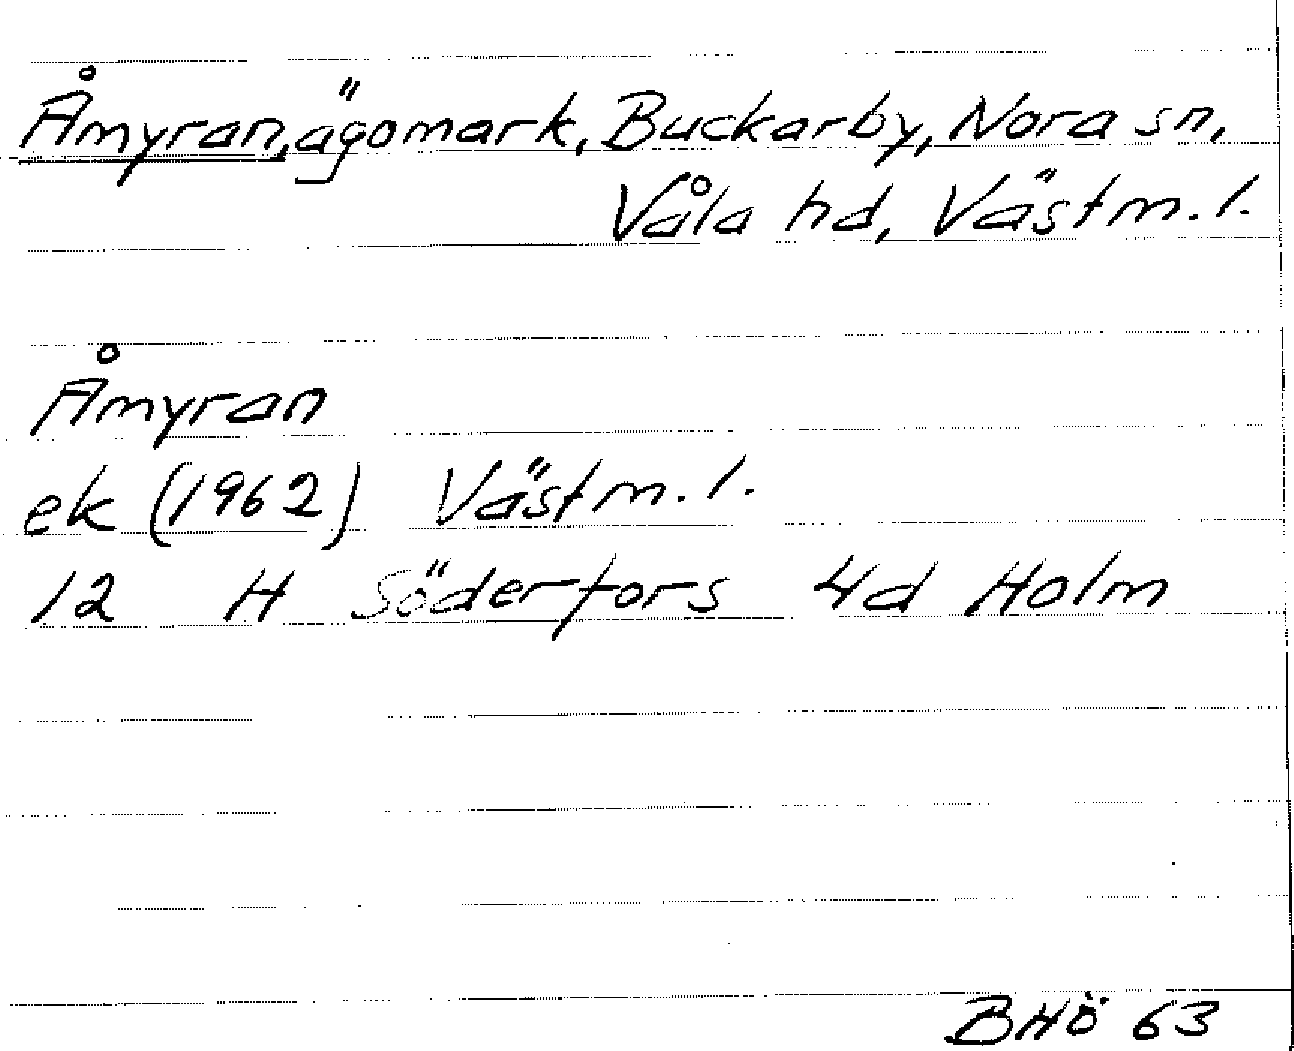 Åmyran, ägomark, Buckarby, Nora sn,
Våla hd, Västm. l.
Åmyran
ek (1962) Västm. l.
12 H Söderfors 4d Holm
BHÖ 63